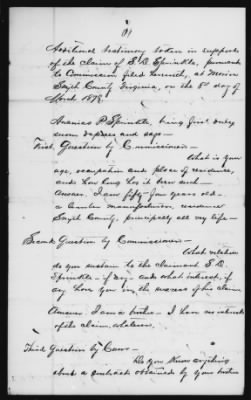 Additional testimony taken in support
of the claim of S. B. Sprinkle, pursuant
to Commission filed herewith, at Marion
Smyth County Virginia, on the 8th day of
March 1879.
Ananias P. Sprinkle, being first duly
sworn deposes and says—
First Question by Commissioner—
What is your
age, occupation and place of residence,
and how long has it been such—
Answer, I am fifty-four years old—
a lumber manufacturer, residence
Smyth County, principally all my life—
Second Question by Commissioner—
What relation
do you sustain to the claimant S. B.
Sprinkle—if any—and what interest, if
any have you in the success of his claim
Answer I am a brother—I have no interest
of the claim, whatever.
Third Question by Same—
Do you know anything
about a contract obtained by your brother